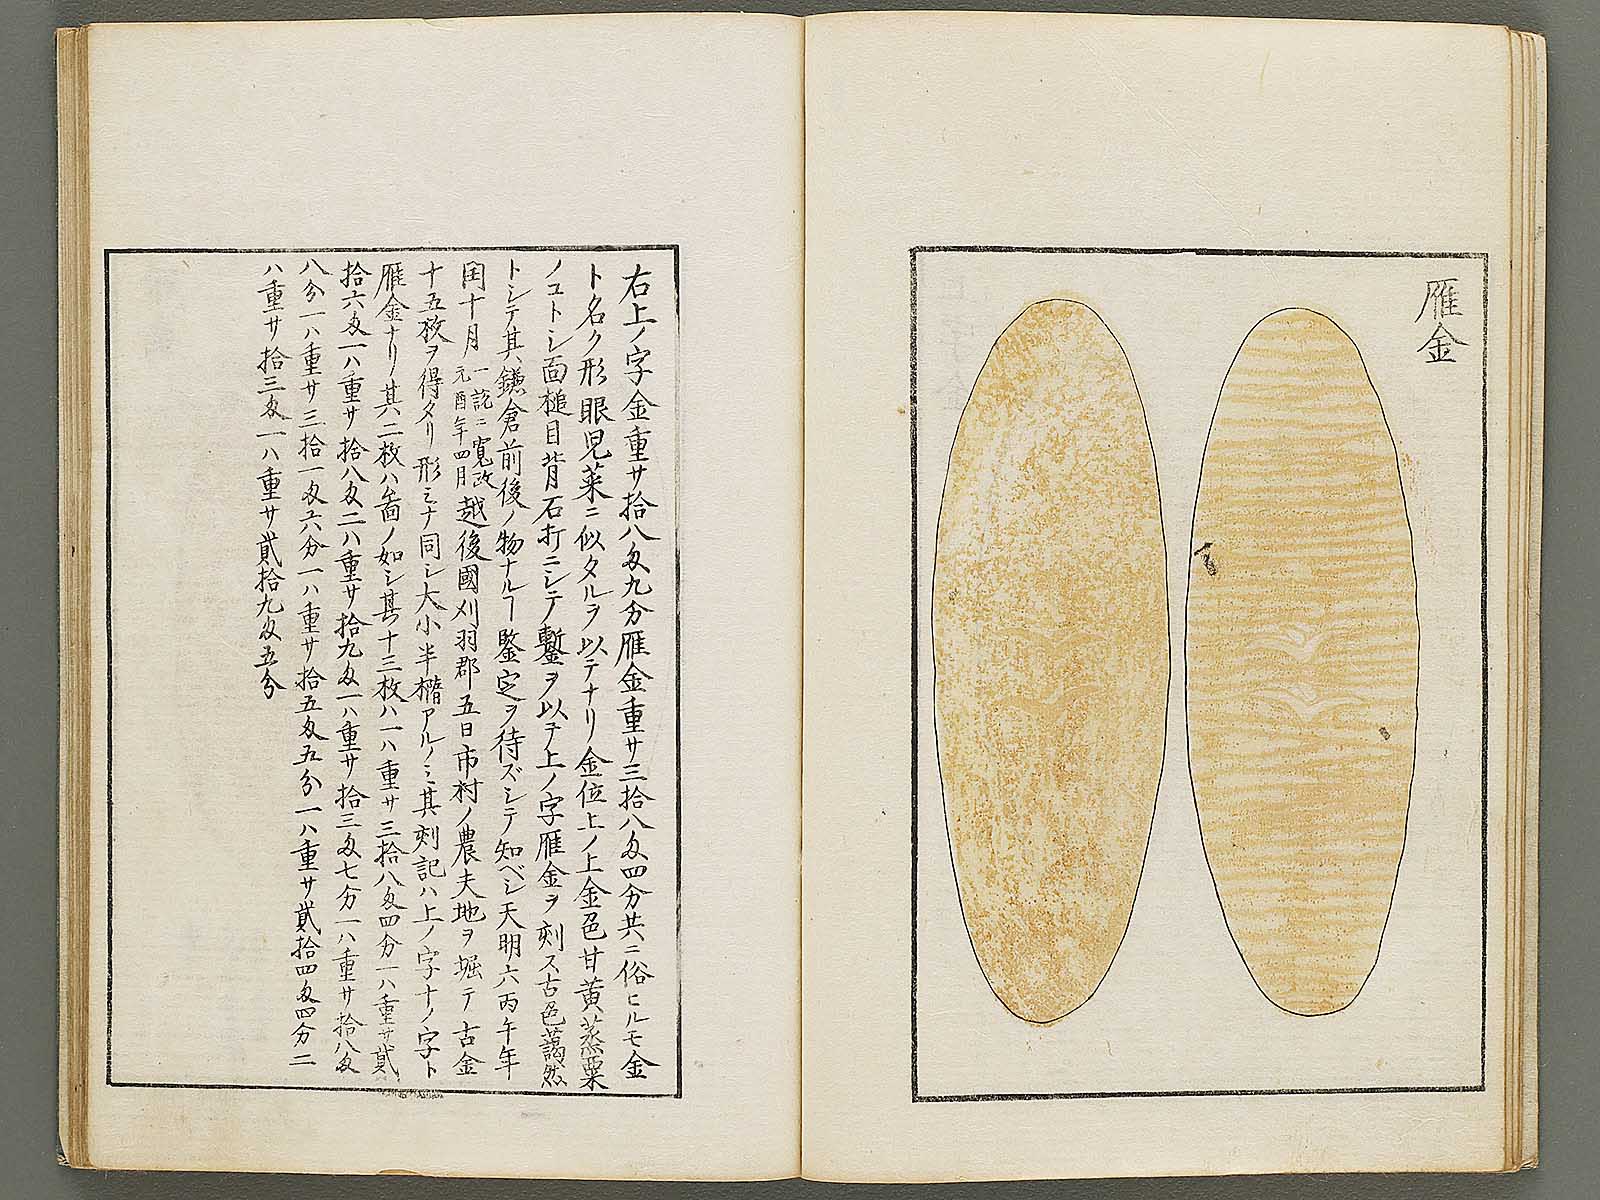 雁金
右上ノ字金重サ拾八匁九分雁金重サ三拾八匁四分共ニ俗ヒルモ金
ト名ク形眼児菜ニ似タルヲ以テナリ金位上ノ上金色甘黄蒸栗
ノコトシ面槌目背石打ニシテ鏨ヲ以テ上ノ字雁金ヲ刻ス古色藹然
トシテ其鎌倉前後ノ物ナルヿ鑒定ヲ待ズシテ知ベシ天明六丙午年
閏十月
一説ニ寛政
元酉年四月
越後國刈羽郡五日市村ノ農夫地ヲ堀テ古金
十五枚ヲ得タリ形ミナ同シ大小半橢アルノミ其刻記ハ上ノ字ナノ字ト
雁金ナリ其二枚ハ啚ノ如シ其十三枚ハ一ハ重サ三拾八匁四分一ハ重サ貳
拾六匁一ハ重サ拾八匁二ハ重サ拾九匁一ハ重サ拾三匁七分一ハ重サ拾八匁
八分一ハ重サ三拾一匁六分一ハ重サ拾五匁五分一ハ重サ貳拾四匁四分二
ハ重サ拾三匁一ハ重サ貳拾九匁五分